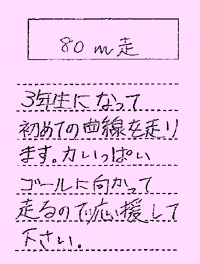 80m走
3年生になって
初めての曲線を走り
ます。力いっぱい
ゴールに向かって
走るので応援して
下さい。